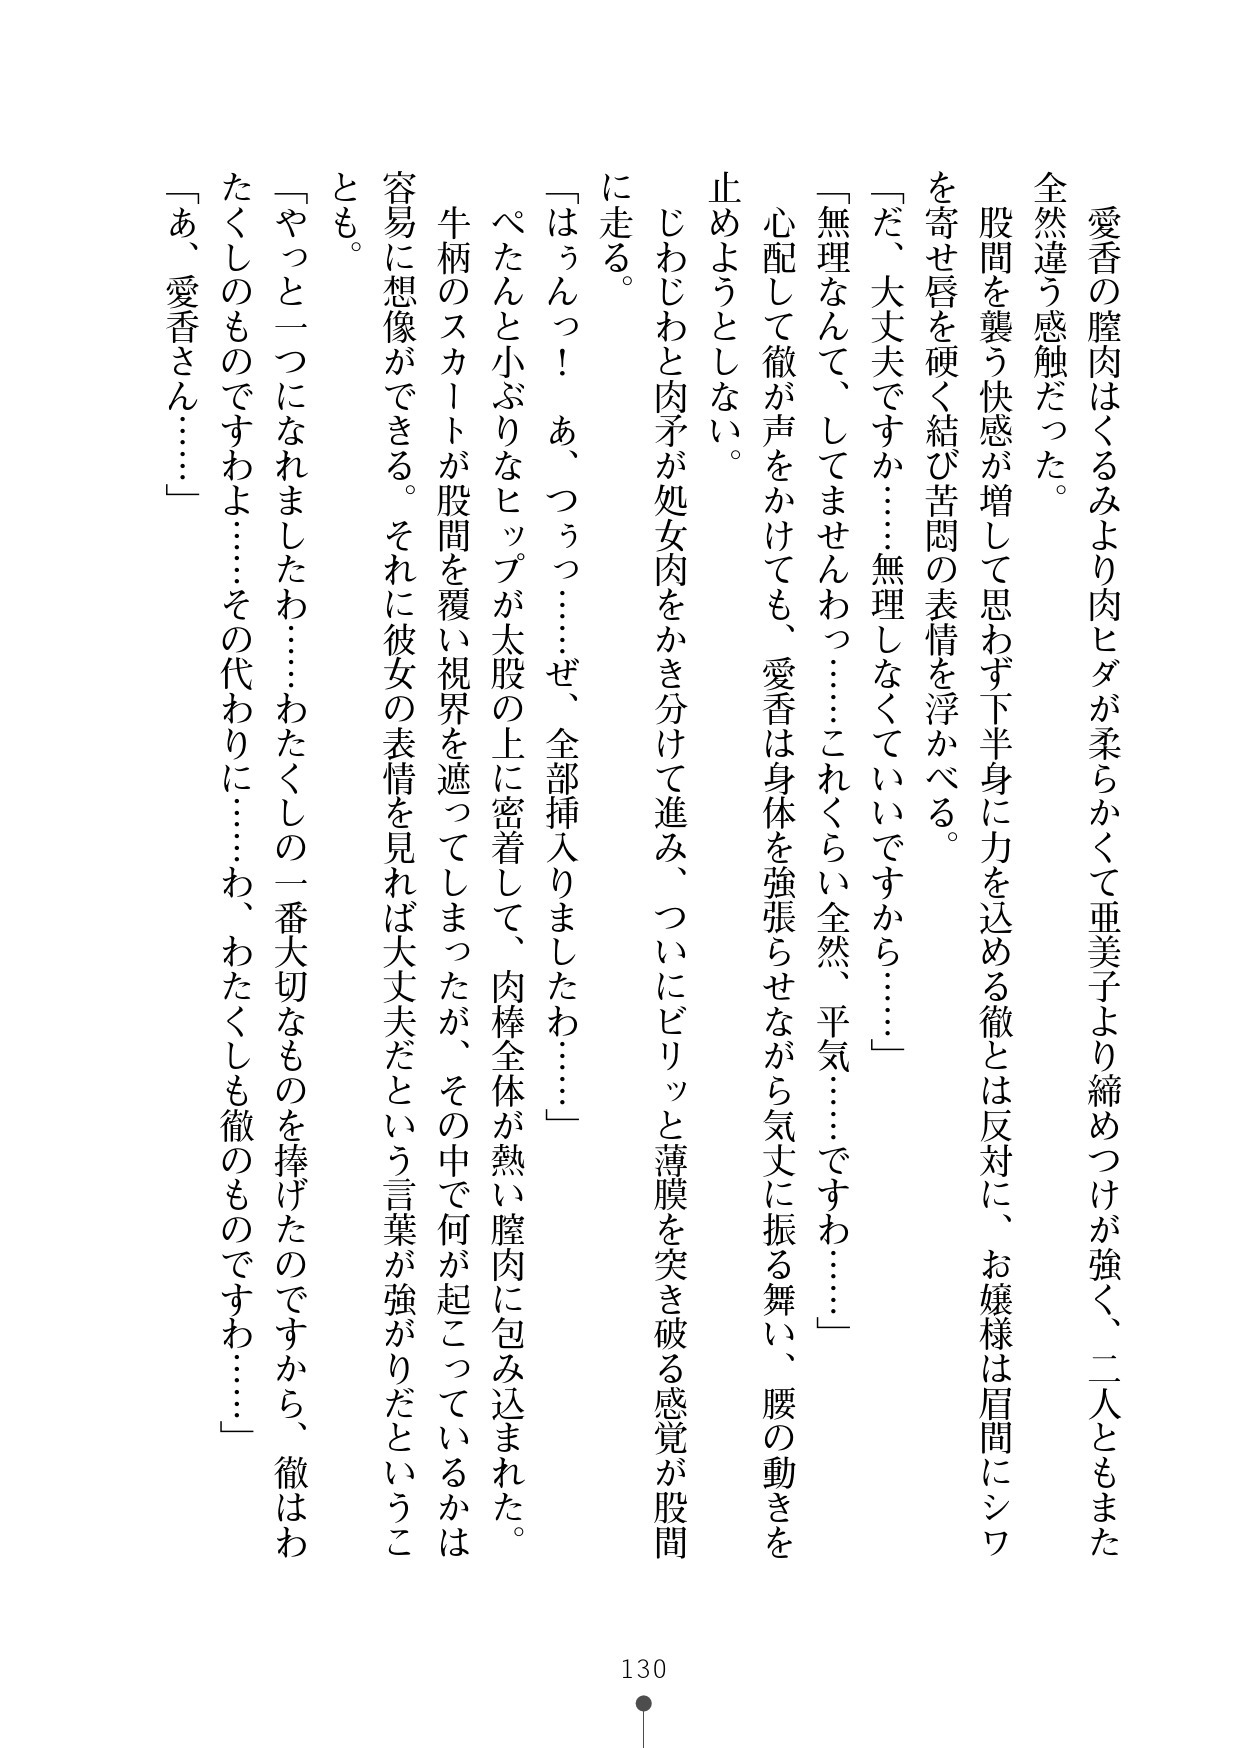 愛香の膣肉はくるみより肉ヒダが柔らかくて亜美子より締めつけが強く、二人ともまた
全然違う感触だった。
股間を襲う快感が増して思わず下半身に力を込める徹とは反対に、お嬢様は眉間にシワ
を寄せ唇を硬く結び苦悶の表情を浮かべる。
「だ、大丈夫ですか……無理しなくていいですから……」
「無理なんて、してませんわっ……これくらい全然、平気……ですわ……」
心配して徹が声をかけても、愛香は身体を強張らせながら気丈に振る舞い、腰の動きを
止めようとしない。
じわじわと肉矛が処女肉をかき分けて進み、ついにビリッと薄膜を突き破る感覚が股間
に走る。
「はぅんっ！　あ、つぅっ……ぜ、全部挿入りましたわ……」
ぺたんと小ぶりなヒップが太股の上に密着して、肉棒全体が熱い膣肉に包み込まれた。
牛柄のスカートが股間を覆い視界を遮ってしまったが、その中で何が起こっているかは
容易に想像ができる。それに彼女の表情を見れば大丈夫だという言葉が強がりだというこ
とも。
「やっと一つになれましたわ……わたくしの一番大切なものを捧げたのですから、徹はわ
たくしのものですわよ……その代わりに……わ、わたくしも徹のものですわ……」
「あ、愛香さん……」
130